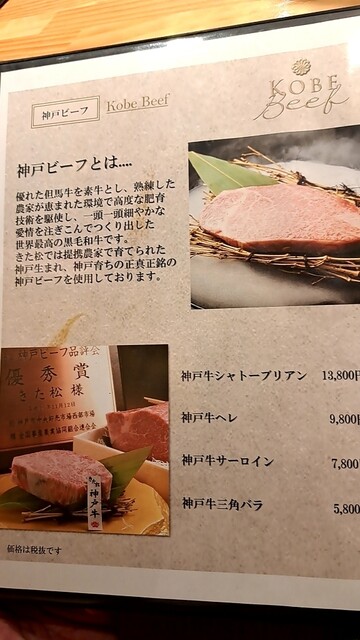 神戸ビーフ Kobe Beef
KOBE
Beef
神戸ビーフとは....
優れた但馬牛を素牛とし、熟練した
農家が恵まれた環境で高度な肥育
技術を駆使し、一頭一頭細やかな
愛情を注ぎこんでつくり出した
世界最高の黒毛和牛です。
きた松では提携農家で育てられた
神戸生まれ、神戸育ちの正真正銘の
神戸ビーフを使用しております。
神戸ビーフ品評会
優秀賞
きた松様
神戸牛
神戸牛シャトーブリアン 13,800円
神戸牛ヘレ 9,800円
神戸牛サーロイン 7,800
神戸牛三角バラ 5,800
価格は税抜です